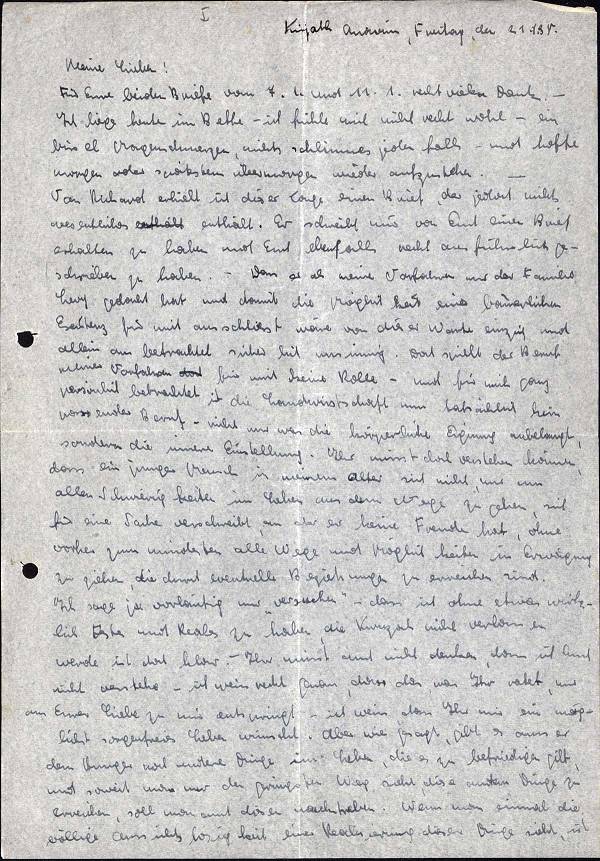 I
Kirjath Anavim, Freitag, den 21.1.38.
Meine Lieben!
Für Eure beiden Briefe vom 7. 1. und 11. 1. recht vielen Dank. —
Ich liege heute im Bette – ich fühle mich nicht recht wohl – ein
bissel Magenschmerzen, nichts schlimmes jeden falls – und hoffe
morgen oder spätestens übermorgen wieder aufzustehen. —
Von Richard erhielt ich dieser Tage einen Brief, der jedoch nichts
wesentliches enthält. Er schreibt mir von Euch einen Brief
erhalten zu haben und Euch ebenfalls recht ausführlich ge-
schrieben zu haben. – Dass er als meine Vorfahren nur der Familie
Levy gedacht hat und damit die Möglichkeit eines bäuerlichen
für mich ausschliesst wäre von dieser Warte einzig und
allein aus betrachtet sicherlich unsinnig. Dort spielt der Beruf
meiner Vorfahren für mich keine Rolle – und für mich ganz
persönlich betrachtet ist die Landwirtschaft nun tatsächlich kein
passender Beruf – nicht nur was die körperliche Eignung anbelangt,
sondern die innere Einstellung. Ihr müsst doch verstehen können,
dass ein junger Mensch in meinem Alter sich nicht, nur um
allen Schwierigkeiten im Leben aus dem Wege zu gehen, sich
für eine Sache verschreibt, an der er keine Freude hat, ohne
vorher zum mindesten alle Wege und Möglichkeiten in Erwägung
zu ziehen, die durch eventuelle Beziehungen zu erreichen sind.
Ich sage ja vorläufig nur "versuchen" – dass ich ohne etwas wirk-
lich Festes und Reales zu haben die Kwuzah nicht verlassen
werde ist doch klar. – Ihr müsst auch nicht denken, dass ich Euch
nicht verstehe – ich weiss recht genau, dass das was Ihr ratet, nur
aus Eurer Liebe zu mir entspringt – ich weiss dass Ihr mir ein mög-
lichst sorgenfreies Leben wünscht. Aber wie gesagt, gibt es ausser
dem Hunger noch andere Dinge im Leben, die es zu befriedigen gilt,
und soweit man nur den geringsten Weg sieht diese anderen Dinge zu
erreichen, soll man auch diesen nachstreben. Wenn man einmal die
völlige Aussichtslosigkeit einer Realisierung dieser Dinge sieht, ist